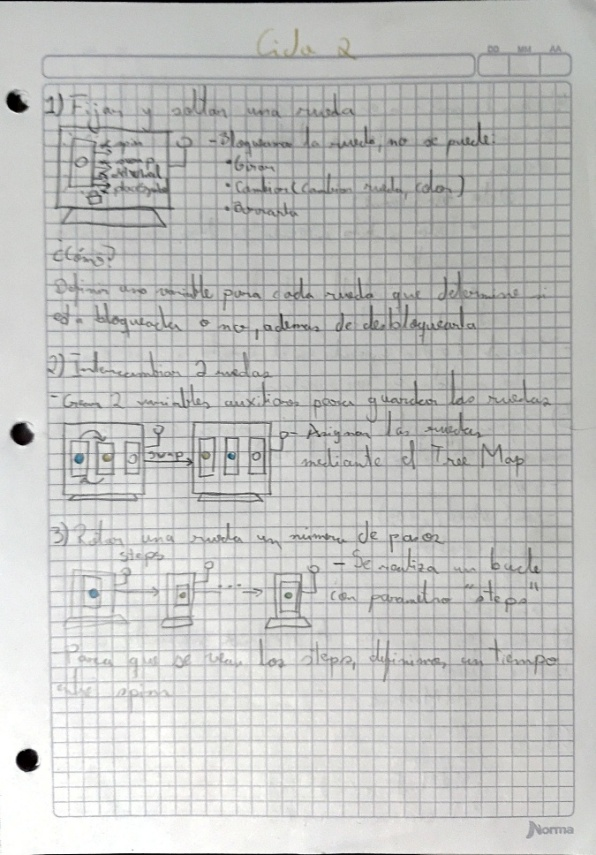 Ciclo 2
DD MM AA
1) Fijar y soltar una rueda
spin
swap
placeSymbol
- Bloquear la rueda, no se puede:
• Girar
• Cambiar (cambiar rueda, color)
¿Cómo?
Definir una variable para cada rueda que determine si
está bloqueada o no, ademas de desbloquearla
2) Intercambiar 2 ruedas
- Crear 2 variables auxiliares para guardar las ruedas
swap
- Asignar las ruedas
mediante el Tree Map
3) Rotar una rueda un número de pasos
steps
- Se realiza un bucle
con parametro "steps"
- Para que se vean los steps, definimos un tiempo
de spin
Norma